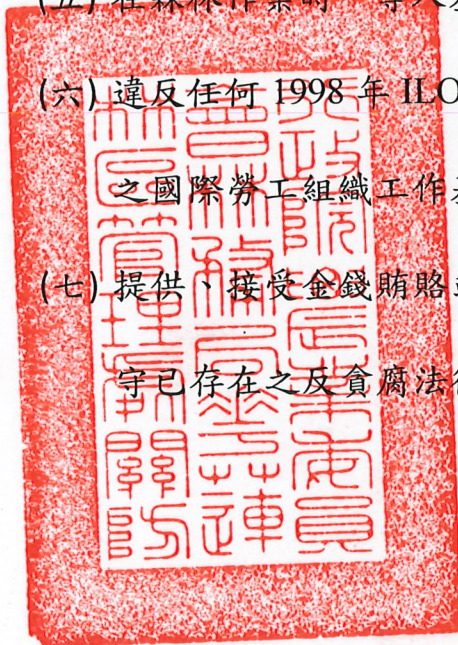 (五) 在森林作業時，導入基
(六) 違反任何 1998 年 ILO
之國際勞工組織工作基
(七) 提供、接受金錢賄賂或
守已存在之反貪腐法律
行政院農業委員
會林務局花蓮
林區管理處關防